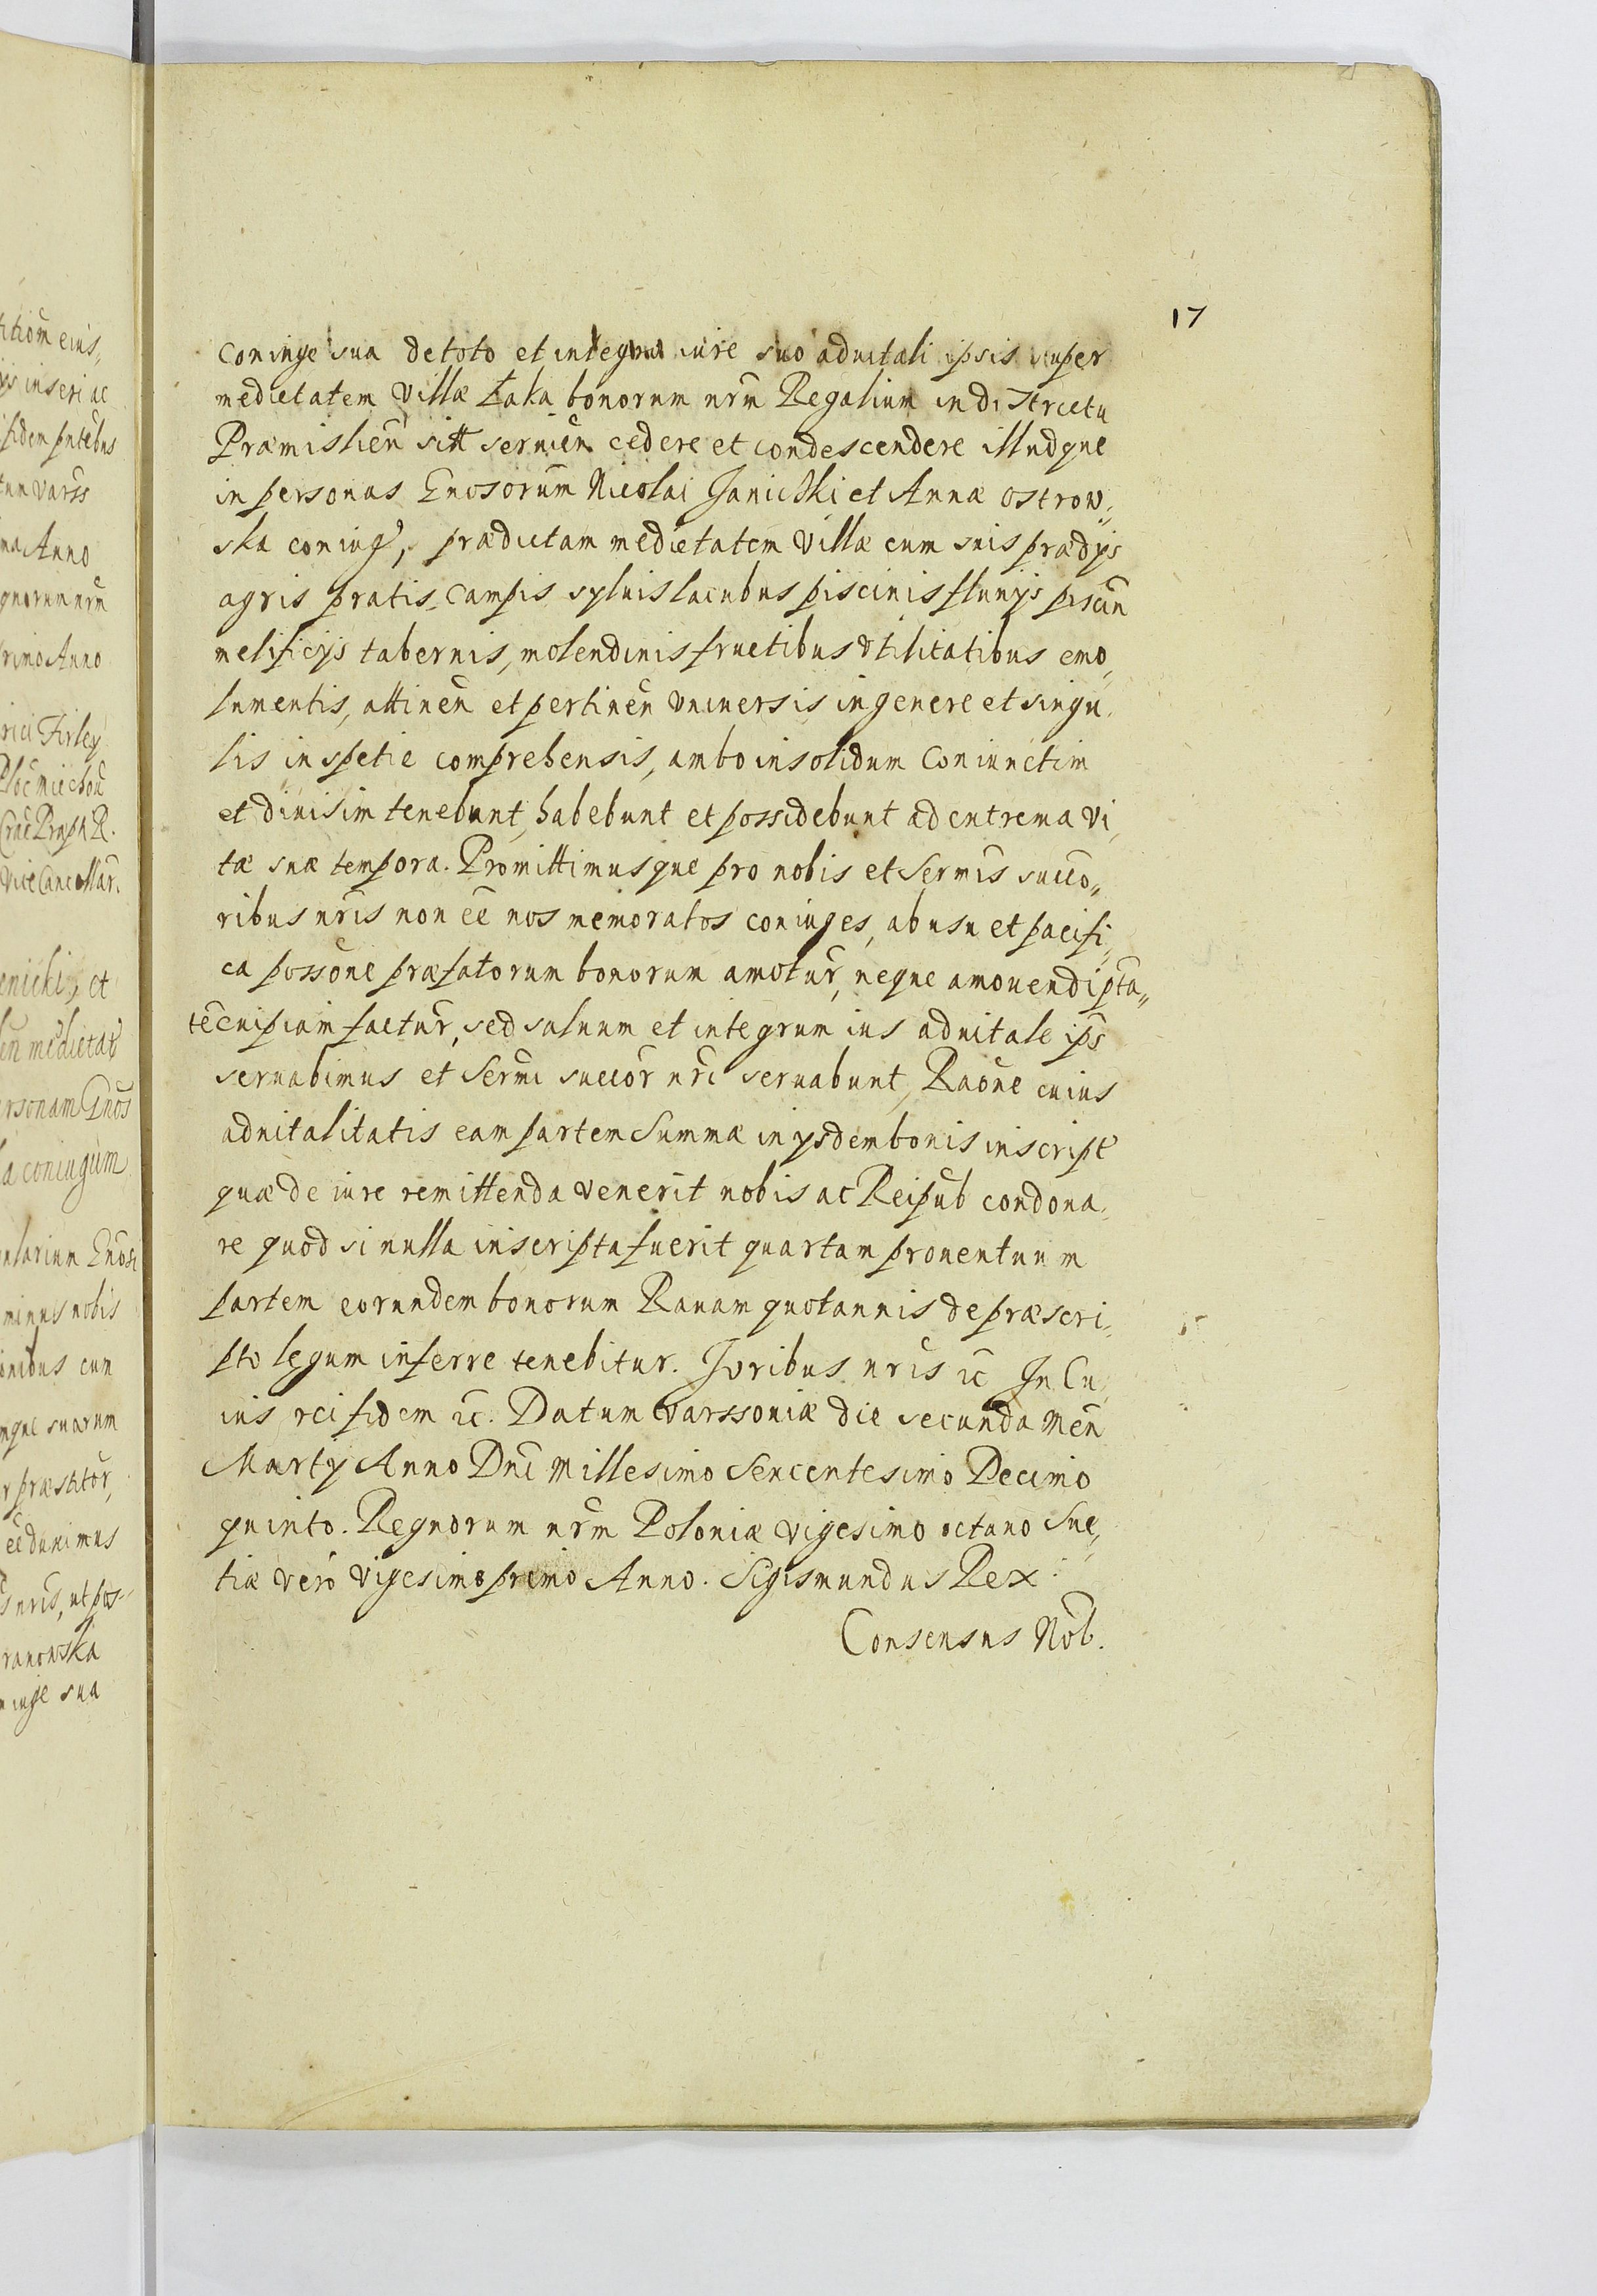 17
coniuge sua de toto et integro iure suo aduitali ipsis super
medietatem Villæ Łaka bonorum nrm̃ Regalium in districtu
Præmislien̄ sitt seruien cedere et condescendere illudque
in personas Gnosorum Nicolai Janicki et Annæ ostrow,,
ska coniug, prædictam medietatem Villæ cum suis prædijs
agris pratis, campis syluis lacubus piscinis fluuijs piscin̄
melificijs tabernis, molendinis fructibus vtilitatibus emo,
lumentis, attinen̄ et pertinen̄ vniuersis in genere et singu,
lis in spetie comprehensis, ambo insolidum coniunctim
et diuisim tenebunt, habebunt et possidebunt ad extrema vi,
tæ suæ tempora. Promittimusque pro nobis et Sermis̄ succo,,
ribus nrīs non eē nos memoratos coniuges, ab usu et pacifi,,
ca possōne præfatorum bonorum amotur̄, neque amouendi ptā,,
tēcuipiam factur̄, sed saluum et integrum ius aduitale ips̄
seruabimus et Sermī succōr nrī seruabunt, Raōne cuius
aduitalitatis eam partem Summæ in ysdem bonis inscript
quæ de iure remittenda venerit nobis ac Reipub̄ condona,
re quod si nulla inscripta fuerit quartam prouentuum
partem eorundem bonorum Rauam quotannis de præscri,,
pto legum inferre tenebitur. Juribus nrīs ꝛc̄ In Cu,
ius rei fidem ꝛc. Datum varssouiæ die secunda Men̄
Martij Anno Dnī Millesimo Sexcentesimo Decimo
quinto. Regnorum nrm̃ Poloniæ vigesimo octauo Sue,
tiæ verò vigesimo primo Anno. Sigismundus Rex.
Consensus Nob.